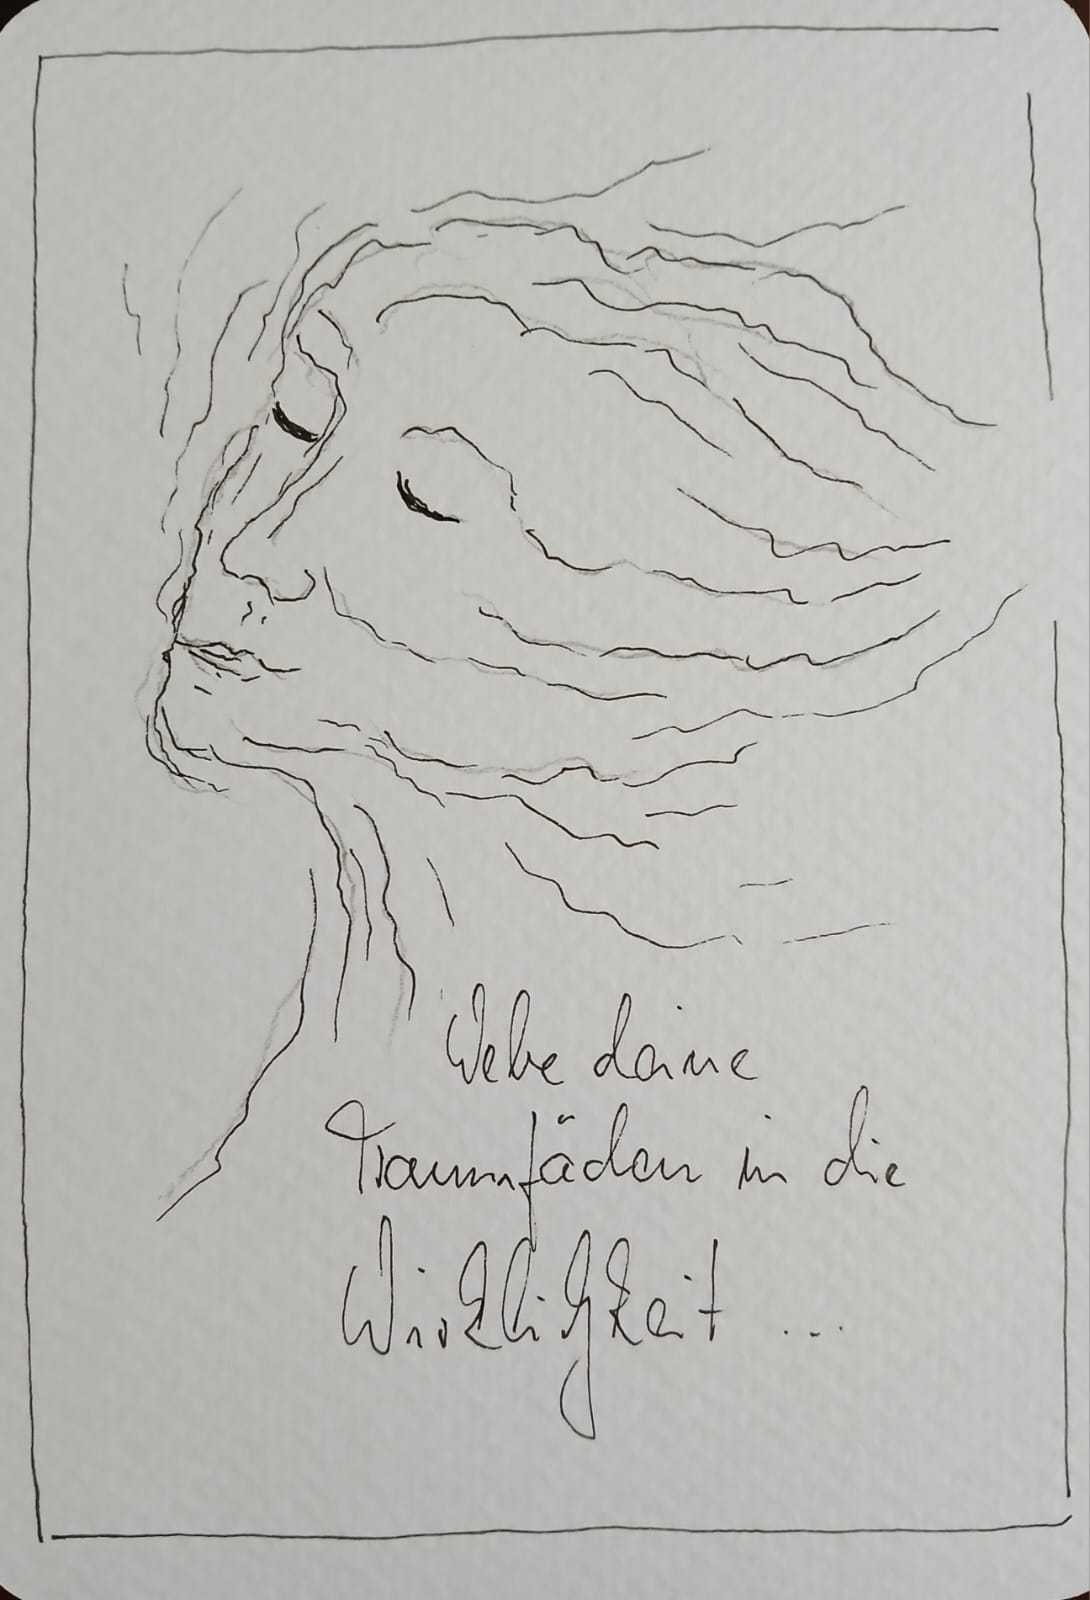 Webe deine
Traumfäden in die
Wirklichkeit ...